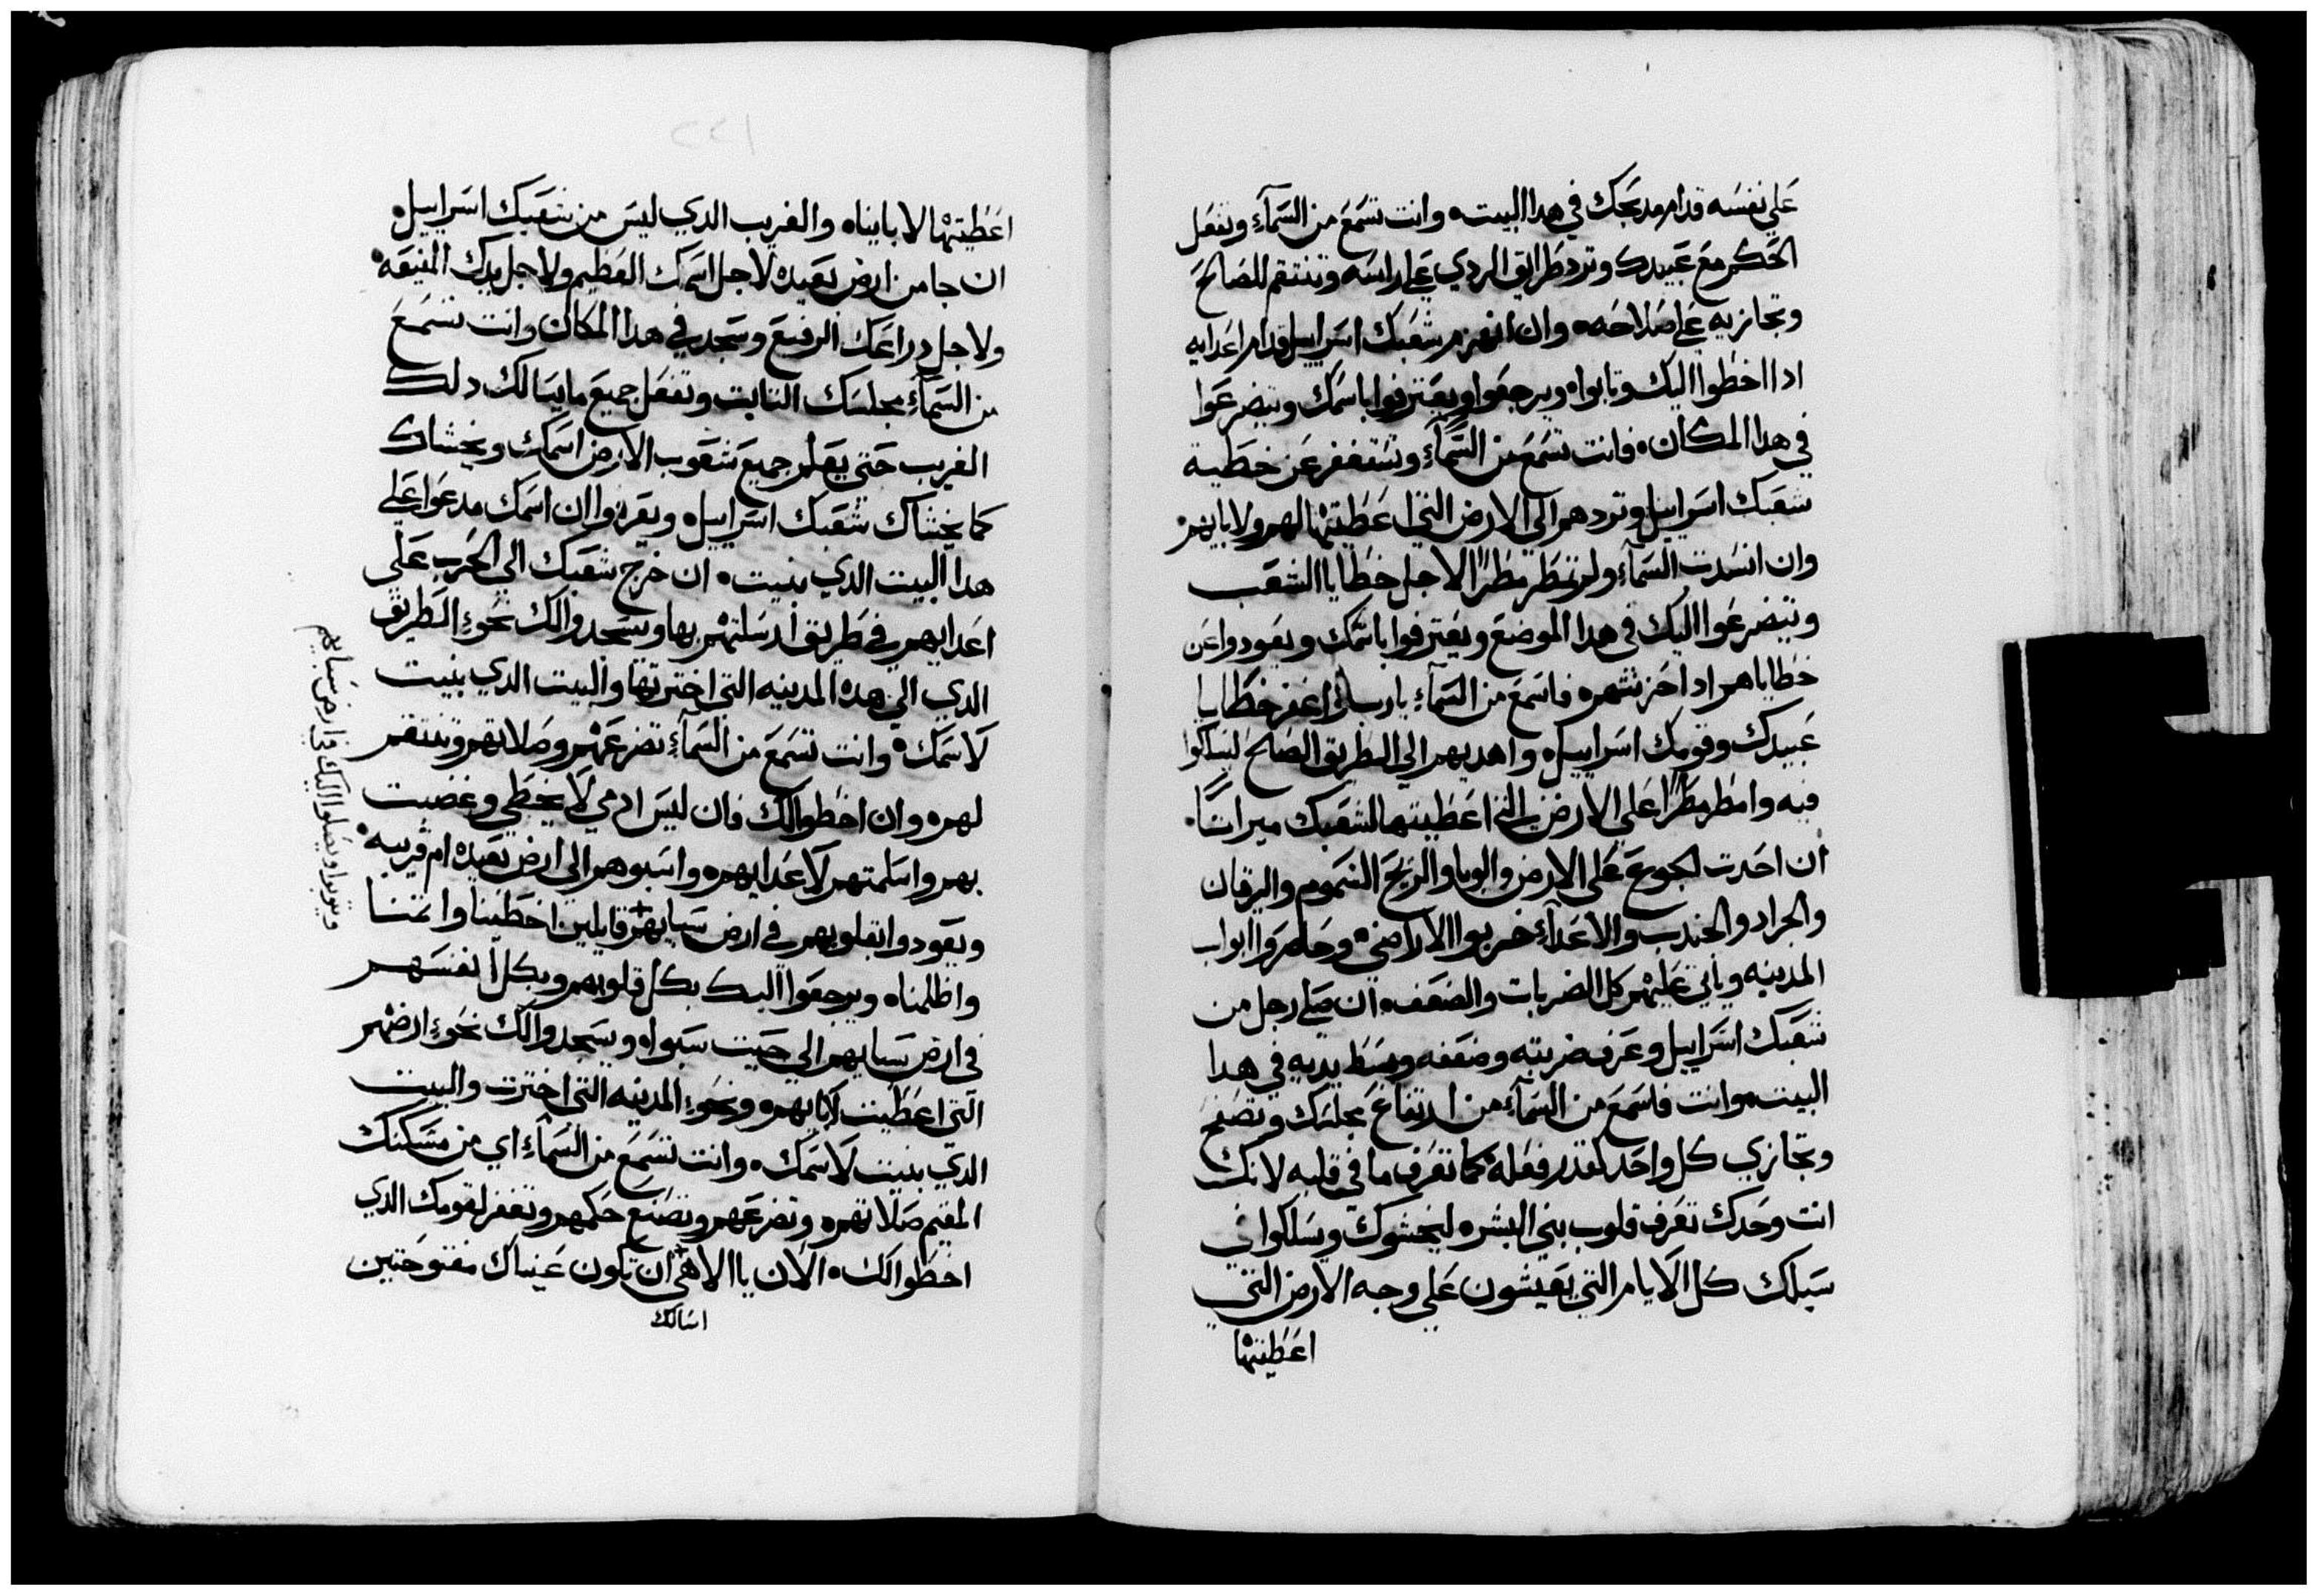 علي نفسه قدام مدبحك في هدا البيت. وانت تسمع من السمآء وتفعل
الحكم مع عبيدك وترد طرايق الردي علي راسه وتنتقم للصالح
وتجازيه علي صلاحه. وان انهزم شعبك اسراييل قدام اعدايه
ادا اخطوا اليك وتابوا. ويرجعوا ويعترفوا باسمك ويتضرعوا
في هدا المكان. فانت تسمع من السمآء وتستغفر عن خطية
شعبك اسراييل وتردهم الي الارض التي اعطيتها لهم ولابايهم
وان انسدت السمآء ولم تمطر مطرًا لاجل خطايا الشعب
ويتضرعوا اليك في هدا الموضع ويعترفوا باسمك ويعودوا عن
خطاياهم ادا احزنتهم. فاسمع من السمآء يا رب اغفر خطايا
عبيدك وقومك اسراييل. واهديهم الي الطريق الصالح ليسلكوا
فيه وامطر مطرًا علي الارض التي اعطيتها لشعبك ميراثًا.
ان احدت الجوع علي الارض والوبا والريح السموم واليرقان
والجراد والجندب والاعدآء خربوا الاراضي. وحاصروا ابواب
المدينه وياتي عليهم كل الضربات والضعف. ان صلي رجل من
شعبك اسراييل وعرف ضربته وضعفه وبسط يديه في هدا
البيت. وانت فاسمع من السمآء من ارتفاع مجلسك وتصفح
وتجازي كل واحد لقدر فعله كما تعرف ما في قلبه لانك
انت وحدك تعرف قلوب بني البشر. ليخشوك ويسلكوا في
سبلك كل الايام التي يعيشون علي وجه الارض التي
اعطيتها
اعطيتها لاباينا. والغريب الدي ليس من شعبك اسراييل.
ان جا من ارض بعيده لاجل اسمك العظيم ولاجل يدك المنيعه.
ولاجل دراعك الرفيع وسجد في هدا المكان وانت تسمع
من السمآء مجلسك الثابت وتفعل جميع ما يسالك دلك
الغريب حتي يعلم جميع شعوب الارض اسمك ويخشاك
كما يخشاك شعبك اسراييل. ويعرفوا ان اسمك مدعوا علي
هدا البيت الدي بنيت. ان خرج شعبك الي الحرب علي
اعدايهم في طريق ارسلتهم بها ويسجدوا لك نحو الطريق
الدي الي هده المدينه التي اخترتها والبيت الدي بنيت
لاسمك. وانت تسمع من السمآء تضرعهم وصلاتهم وتنتقم
لهم. وان اخطوا لك فان ليس ادمي لا يخطي وغضبت
بهم واسلمتهم لاعدايهم. واسبوهم الي ارض بعيده ام قريبه.
ويعودوا بقلوبهم في ارض سبايهم قايلين اخطينا واثمنا
واظلمنا. ويرجعوا اليك بكل قلوبهم وبكل انفسهم
في ارض سبايهم الي حيث سبوا. ويسجدوا لك نحو ارضهم
التي اعطيت لابايهم. ونحو المدينه التي اخترت والبيت
الدي بنيت لاسمك. وانت تسمع من السمآء اي من مسكنك
المقيم صلاتهم. وتضرعهم وتصنع حكمهم وتغفر لقومك الدي
اخطوا لك. الان يا الاهي ان تكون عيناك مفتوحتين
اسالك
ويتوبوا ويصلوا اليك في ارض سبايهم